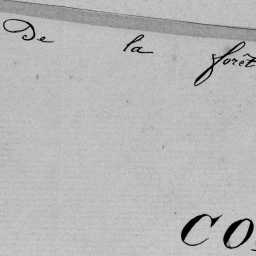 De la forêt
CO